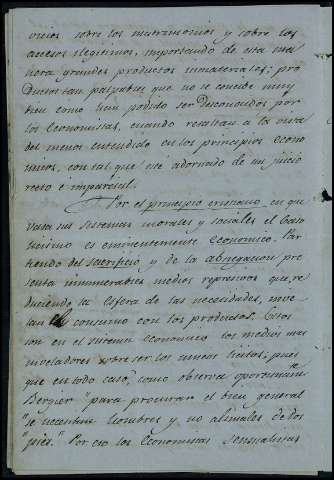 vicios sobre los matrimonios y sobre los
accesos ilegitimos, importando de esta ma
nera grandes productos inmateriales; pro
ductos tan palpables que no se concibe muy
bien como han podido ser desconocidos por
los Economistas, cuando resaltan a la vista
del menos entendido en los principios econo
micos, con tal que esté adornado de un juicio
recto e imparcial.
Por el principio cristiano, en que
basa sus sistemas morales y sociales el Cato
licismo es eminentemente economico. Par
tiendo del sacrificio y de la abnegacion pre
senta innumerables medios represivos que, re
duciendo la esfera de las necesidades, nive
lan el consumo con los productos. Estos
son en el sistema economico los medios mas
niveladores sobre ser los unicos licitos; pues
que en todo caso, como observa oportunam.te
Bergier "para procurar el bien general
"se necesitan hombres y no animales de dos
"pies." Por eso los Economistas sensualistas